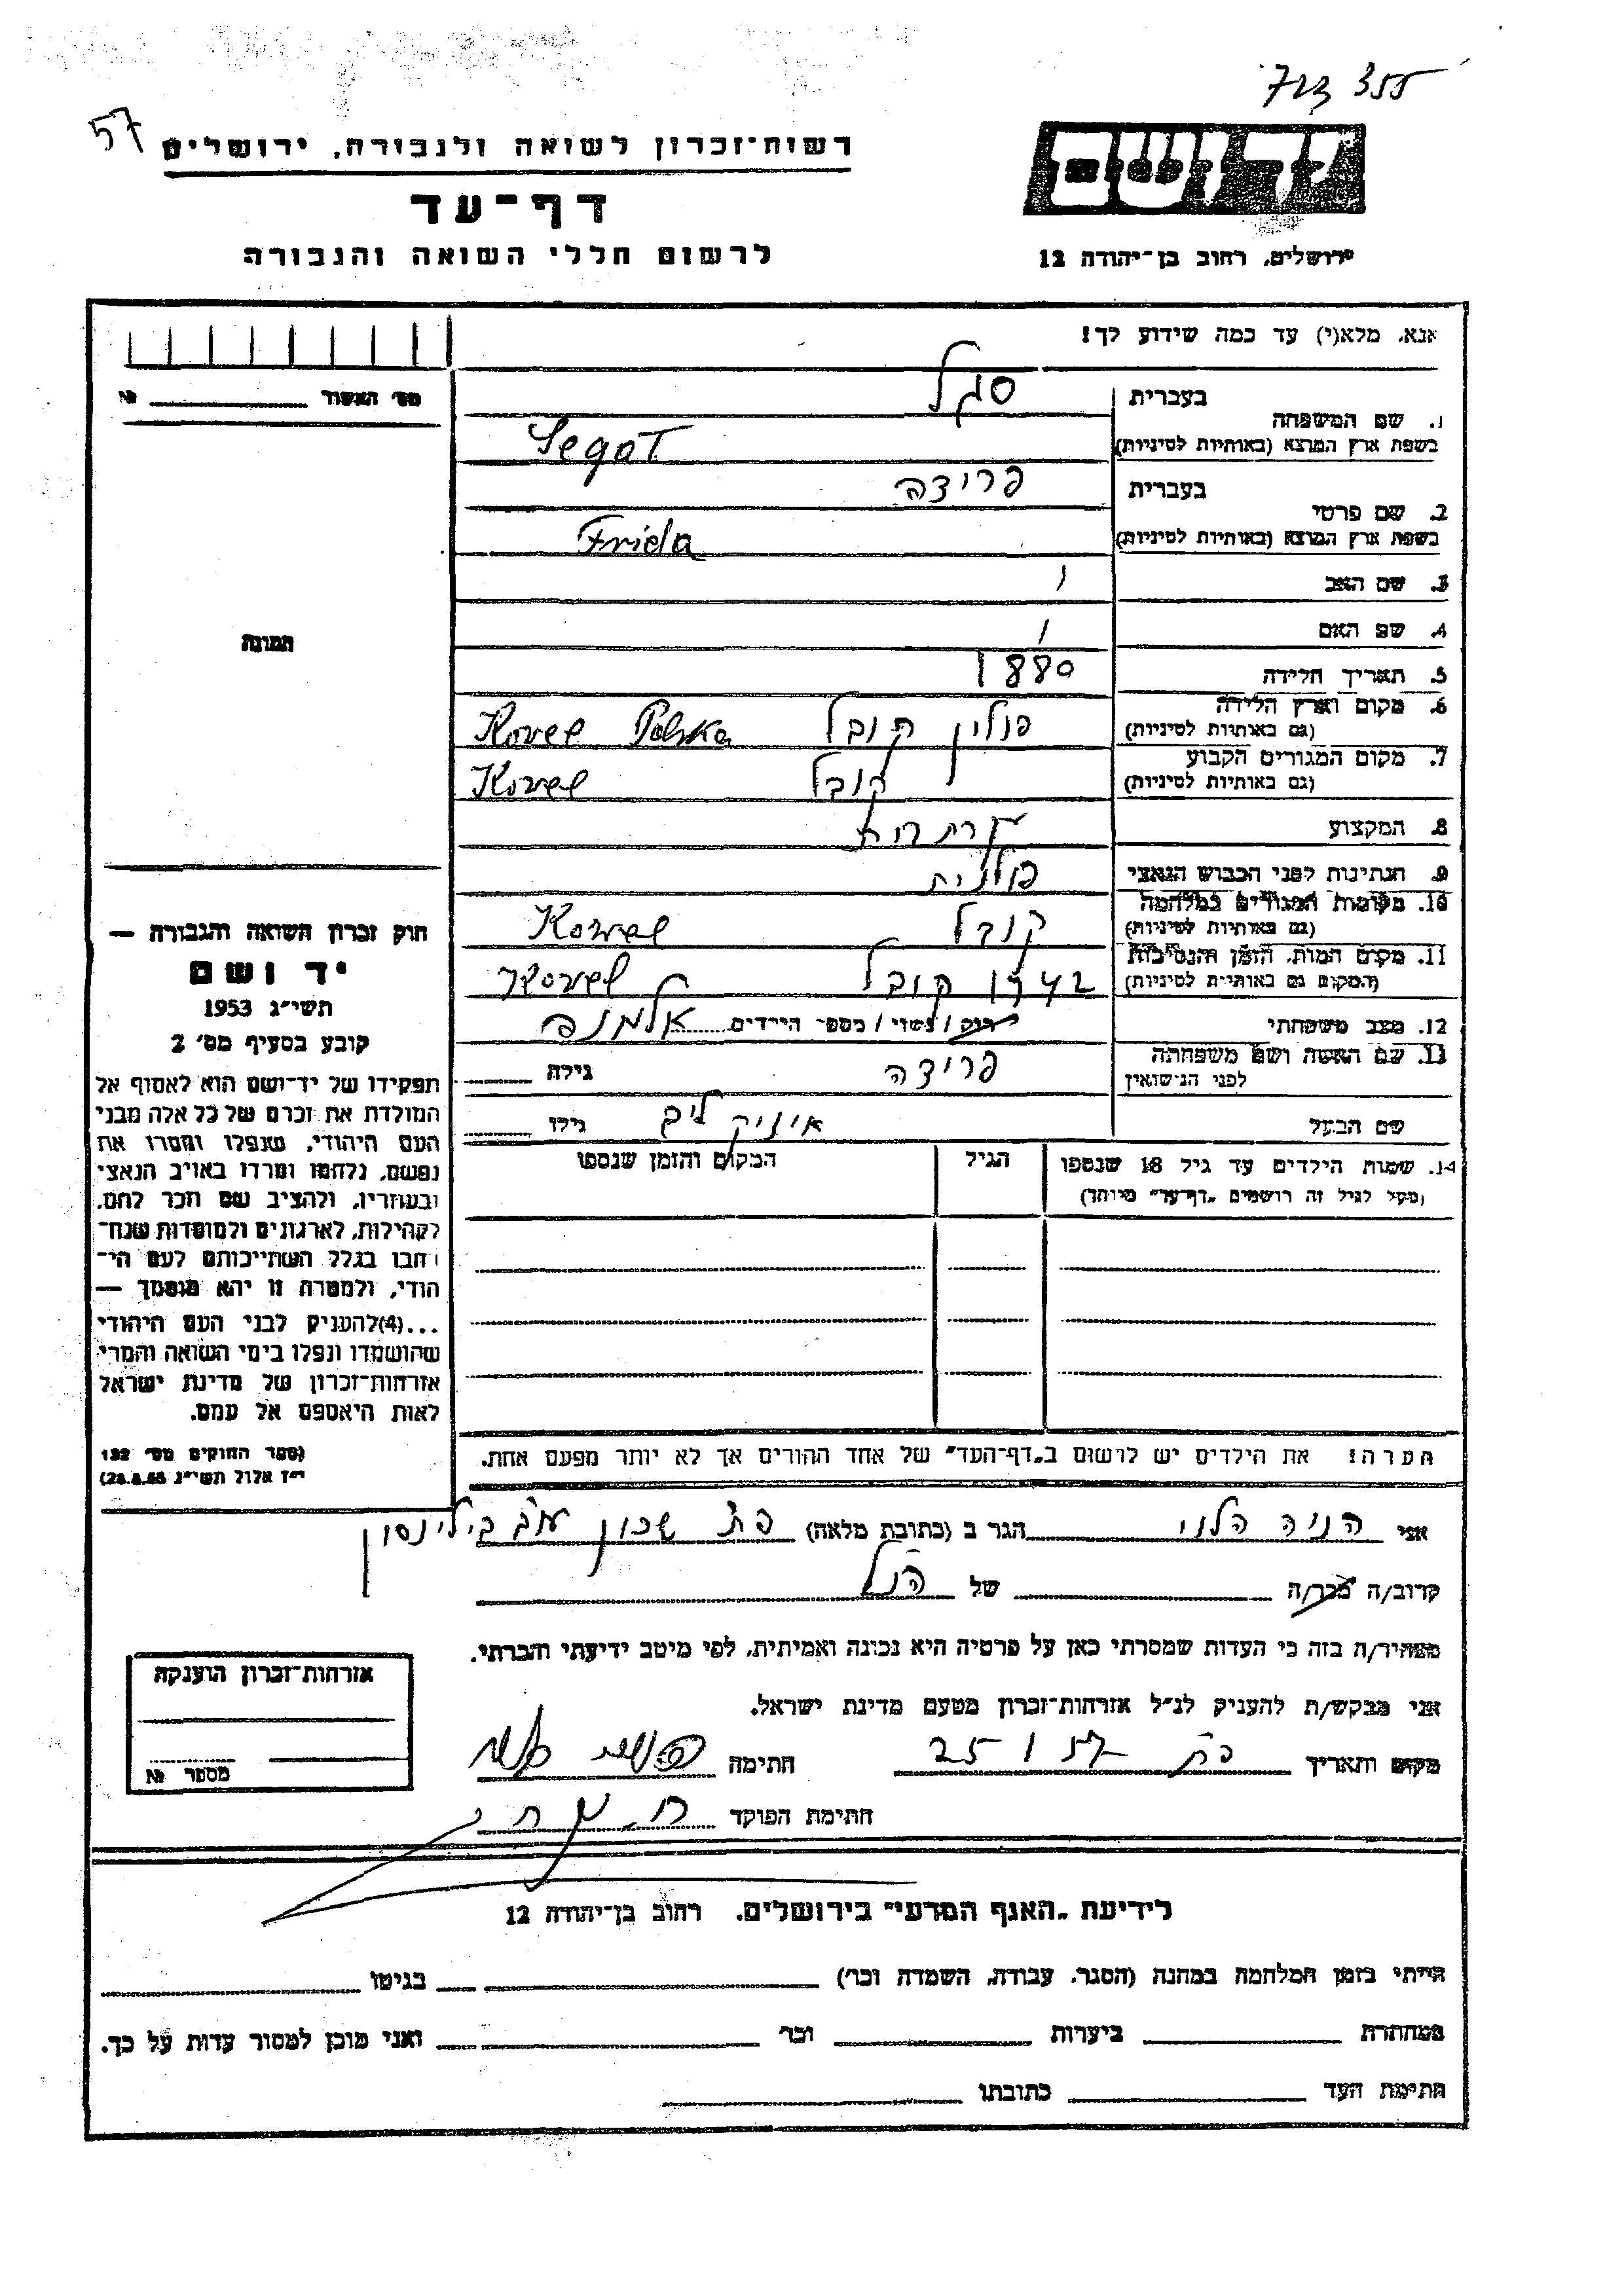 57
355
רשות-זכרון לשואה ולגבורה, ירושלים
יד ושם
דף-עד
לרשום חללי השואה והגבורה
ירושלים, רחוב בן-יהודה 12
אנא, מלא(י) עד כמה שידוע לך!
מס' האשור № 
בעברית סגל
1. שם המשפחה
בשפת ארץ המוצא (באותיות לטיניות) Segal
בעברית פרידה
2. שם פרטי
בשפת ארץ המוצא (באותיות לטיניות) Frida
3. שם האב /
4. שם האם /
תמונה
5. תאריך הלידה 1880
6. מקום וארץ הלידה (גם באותיות לטיניות) פולין קובל Kovel Polska
7. מקום המגורים הקבוע (גם באותיות לטיניות) קובל Kovel
8. המקצוע
9. הנתינות לפני הכבוש הנאצי פולנית
10. מקומות המגורים במלחמה (גם באותיות לטיניות) קובל Kowel
11. מקום המות, הזמן והנסיבות (המקום גם באותיות לטיניות) 1942 קובל Kovel
12. מצב משפחתי רווק/נשוי/מספר הילדים אלמנה
13. שם האשה ושם משפחתה לפני הנישואין פרידה גילה
שם הבעל גילו
14. שמות הילדים עד גיל 18 שנספו הגיל המקום והזמן שנספו
(מעל לגיל זה רושמים "דף-עד" מיוחד)
חוק זכרון השואה והגבורה —
יד ושם
תשי"ג 1953
קובע בסעיף מס' 2
תפקידו של יד-ושם הוא לאסוף אל
המולדת את זכרם של כל אלה מבני
העם היהודי, שנפלו ומסרו את
נפשם, נלחמו ומרדו באויב הנאצי
ובעוזריו, ולהציב שם וזכר להם,
לקהילות, לארגונים ולמוסדות שנח-
רבו בגלל השתייכותם לעם הי-
הודי, ולמטרה זו יהא מוסמך —
...(4)להעניק לבני העם היהודי
שהושמדו ונפלו בימי השואה והמרי
אזרחות-זכרון של מדינת ישראל
לאות היאספם אל עמם.
(ספר החוקים מס' 132
י"ז אלול תשי"ג 28.8.53)
הערה! את הילדים יש לרשום ב"דף-העד" של אחד ההורים אך לא יותר מפעם אחת.
אני הניה הלוי הגר ב (כתובת מלאה) פת שכון עוב בילינסון
קרוב/ה מכר/ה של הנ"ל
מצהיר/ה בזה כי העדות שמסרתי כאן על פרטיה היא נכונה ואמיתית, לפי מיטב ידיעתי והכרתי.
אני מבקש/ת להעניק לנ"ל אזרחות-זכרון מטעם מדינת ישראל.
מקום ותאריך פת 25 חתימה
חתימת הפוקד
אזרחות-זכרון הוענקה
מספר №
לידיעת "האגף המדעי" בירושלים, רחוב בן-יהודה 12
הייתי בזמן המלחמה במחנה (הסגר, עבודה, השמדה וכו') בגיטו
במחתרת ביערות וכו' ואני מוכן למסור עדות על כך.
חתימת העד כתובתו